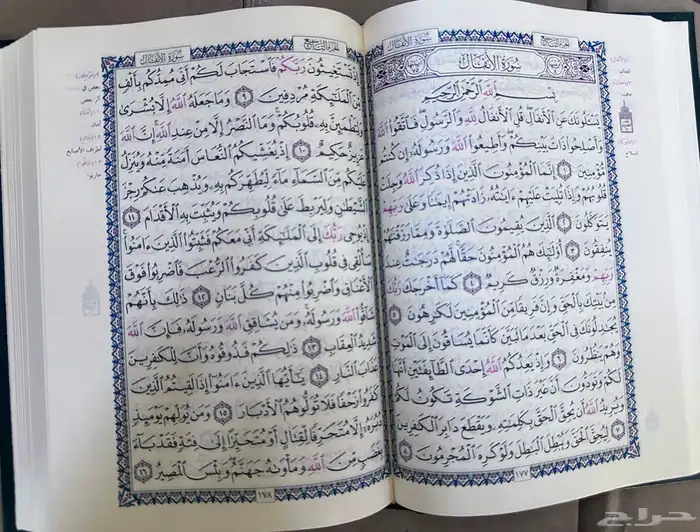 الجزء التاسع
سورة الأنفال
سُورَةُ الأَنفَالِ
بِسْمِ اللَّهِ الرَّحْمَٰنِ الرَّحِيمِ
يَسْـَٔلُونَكَ عَنِ ٱلْأَنفَالِ قُلِ ٱلْأَنفَالُ لِلَّهِ وَٱلرَّسُولِ فَٱتَّقُوا۟ ٱللَّهَ
وَأَصْلِحُوا۟ ذَاتَ بَيْنِكُمْ وَأَطِيعُوا۟ ٱللَّهَ وَرَسُولَهُۥٓ إِن كُنتُم
مُّؤْمِنِينَ ١ إِنَّمَا ٱلْمُؤْمِنُونَ ٱلَّذِينَ إِذَا ذُكِرَ ٱللَّهُ وَجِلَتْ
قُلُوبُهُمْ وَإِذَا تُلِيَتْ عَلَيْهِمْ ءَايَٰتُهُۥ زَادَتْهُمْ إِيمَٰنًا وَعَلَىٰ رَبِّهِمْ
يَتَوَكَّلُونَ ٢ ٱلَّذِينَ يُقِيمُونَ ٱلصَّلَوٰةَ وَمِمَّا رَزَقْنَٰهُمْ
يُنفِقُونَ ٣ أُو۟لَٰٓئِكَ هُمُ ٱلْمُؤْمِنُونَ حَقًّا لَّهُمْ دَرَجَٰتٌ عِندَ
رَبِّهِمْ وَمَغْفِرَةٌ وَرِزْقٌ كَرِيمٌ ٤ كَمَآ أَخْرَجَكَ رَبُّكَ
مِنۢ بَيْتِكَ بِٱلْحَقِّ وَإِنَّ فَرِيقًا مِّنَ ٱلْمُؤْمِنِينَ لَكَٰرِهُونَ ٥
يُجَٰدِلُونَكَ فِى ٱلْحَقِّ بَعْدَ مَا تَبَيَّنَ كَأَنَّمَا يُسَاقُونَ إِلَى ٱلْمَوْتِ
وَهُمْ يَنظُرُونَ ٦ وَإِذْ يَعِدُكُمُ ٱللَّهُ إِحْدَى ٱلطَّآئِفَتَيْنِ أَنَّهَا
لَكُمْ وَتَوَدُّونَ أَنَّ غَيْرَ ذَاتِ ٱلشَّوْكَةِ تَكُونُ لَكُمْ
وَيُرِيدُ ٱللَّهُ أَن يُحِقَّ ٱلْحَقَّ بِكَلِمَٰتِهِۦ وَيَقْطَعَ دَابِرَ ٱلْكَٰفِرِينَ
٧ لِيُحِقَّ ٱلْحَقَّ وَيُبْطِلَ ٱلْبَٰطِلَ وَلَوْ كَرِهَ ٱلْمُجْرِمُونَ ٨
١٧٧
الجزء التاسع
سورة الأنفال
إِذْ تَسْتَغِيثُونَ رَبَّكُمْ فَٱسْتَجَابَ لَكُمْ أَنِّى مُمِدُّكُم بِأَلْفٍ
مِّنَ ٱلْمَلَٰٓئِكَةِ مُرْدِفِينَ ٩ وَمَا جَعَلَهُ ٱللَّهُ إِلَّا بُشْرَىٰ
وَلِتَطْمَئِنَّ بِهِۦ قُلُوبُكُمْ وَمَا ٱلنَّصْرُ إِلَّا مِنْ عِندِ ٱللَّهِ إِنَّ ٱللَّهَ
عَزِيزٌ حَكِيمٌ ١٠ إِذْ يُغَشِّيكُمُ ٱلنُّعَاسَ أَمَنَةً مِّنْهُ وَيُنَزِّلُ
عَلَيْكُم مِّنَ ٱلسَّمَآءِ مَآءً لِّيُطَهِّرَكُم بِهِۦ وَيُذْهِبَ عَنكُمْ رِجْزَ
ٱلشَّيْطَٰنِ وَلِيَرْبِطَ عَلَىٰ قُلُوبِكُمْ وَيُثَبِّتَ بِهِ ٱلْأَقْدَامَ ١١
إِذْ يُوحِى رَبُّكَ إِلَى ٱلْمَلَٰٓئِكَةِ أَنِّى مَعَكُمْ فَثَبِّتُوا۟ ٱلَّذِينَ ءَامَنُوا۟
سَأُلْقِى فِى قُلُوبِ ٱلَّذِينَ كَفَرُوا۟ ٱلرُّعْبَ فَٱضْرِبُوا۟ فَوْقَ
ٱلْأَعْنَاقِ وَٱضْرِبُوا۟ مِنْهُمْ كُلَّ بَنَانٍ ١٢ ذَٰلِكَ بِأَنَّهُمْ
شَآقُّوا۟ ٱللَّهَ وَرَسُولَهُۥ وَمَن يُشَاقِقِ ٱللَّهَ وَرَسُولَهُۥ فَإِنَّ ٱللَّهَ
شَدِيدُ ٱلْعِقَابِ ١٣ ذَٰلِكُمْ فَذُوقُوهُ وَأَنَّ لِلْكَٰفِرِينَ
عَذَابَ ٱلنَّارِ ١٤ يَٰٓأَيُّهَا ٱلَّذِينَ ءَامَنُوٓا۟ إِذَا لَقِيتُمُ ٱلَّذِينَ
كَفَرُوا۟ زَحْفًا فَلَا تُوَلُّوهُمُ ٱلْأَدْبَارَ ١٥ وَمَن يُوَلِّهِمْ يَوْمَئِذٍ
دُبُرَهُۥٓ إِلَّا مُتَحَرِّفًا لِّقِتَالٍ أَوْ مُتَحَيِّزًا إِلَىٰ فِئَةٍ فَقَدْ بَآءَ
بِغَضَبٍ مِّنَ ٱللَّهِ وَمَأْوَىٰهُ جَهَنَّمُ وَبِئْسَ ٱلْمَصِيرُ ١٦
١٧٨
بعض في
أثر بعض
أمان
أطراف الأصابع
حاربوا
حراج